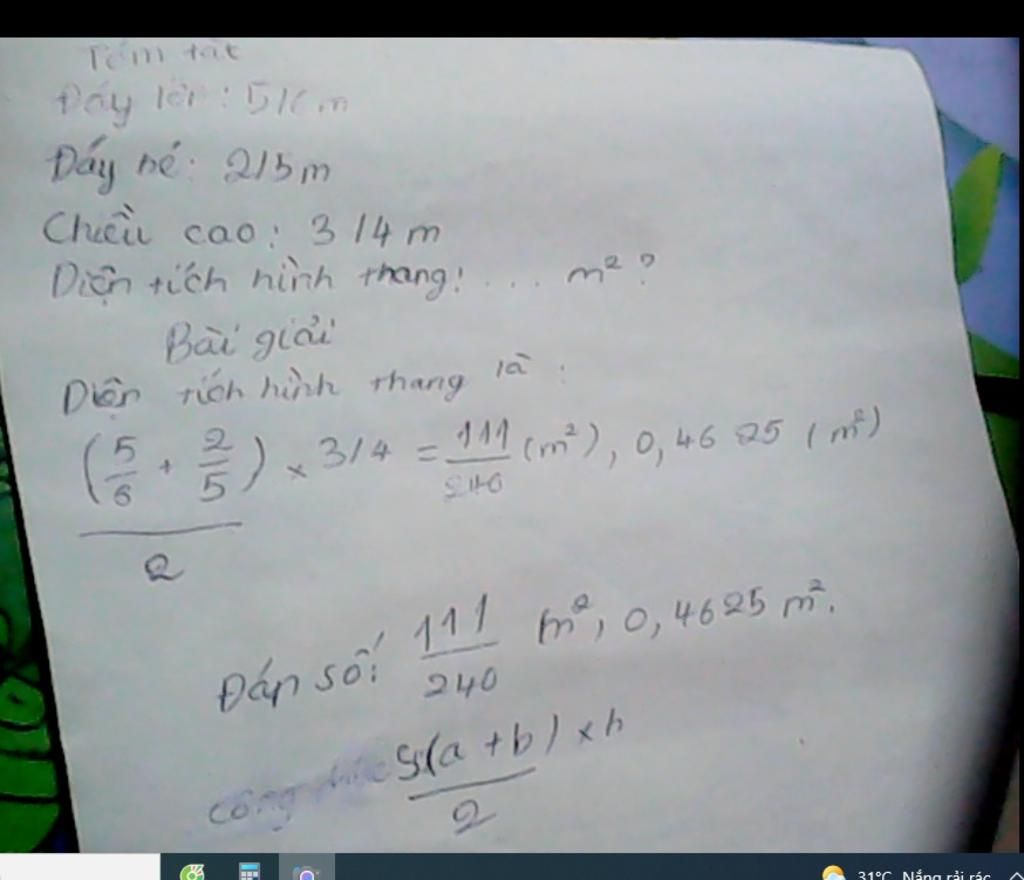 Tóm tắt
Đáy lớn: 5/6m
Đáy bé: 2/5m
Chiều cao: 3/4m
Diện tích hình thang: ... m²?
Bài giải
Diện tích hình thang là:
(5/6 + 2/5) × 3/4 = 111/240 (m²), 0,4625 (m²)
2
Đáp số: 111/240 m², 0,4625 m².
Công thức S(a + b) × h
2
31°C Nắng rải rác